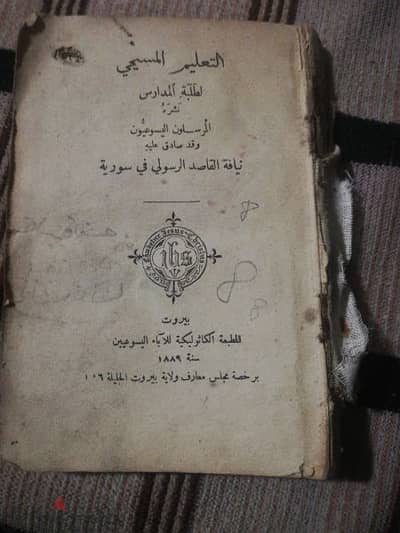 التعليم المسيحي
لطلبة المدارس
نشرهُ
المرسلون اليسوعيون
وقد صادق عليهِ
نيافة القاصد الرسولي في سورية
ihs
8
8
بيروت
للمطبعة الكاثوليكية للآباء اليسوعيين
سنة ١٨٨٩
برخصة مجلس معارف ولاية بيروت الجليلة ١٠٦